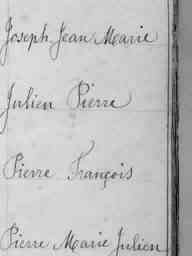 Joseph Jean Marie
Julien Pierre
Pierre François
Pierre Marie Julien